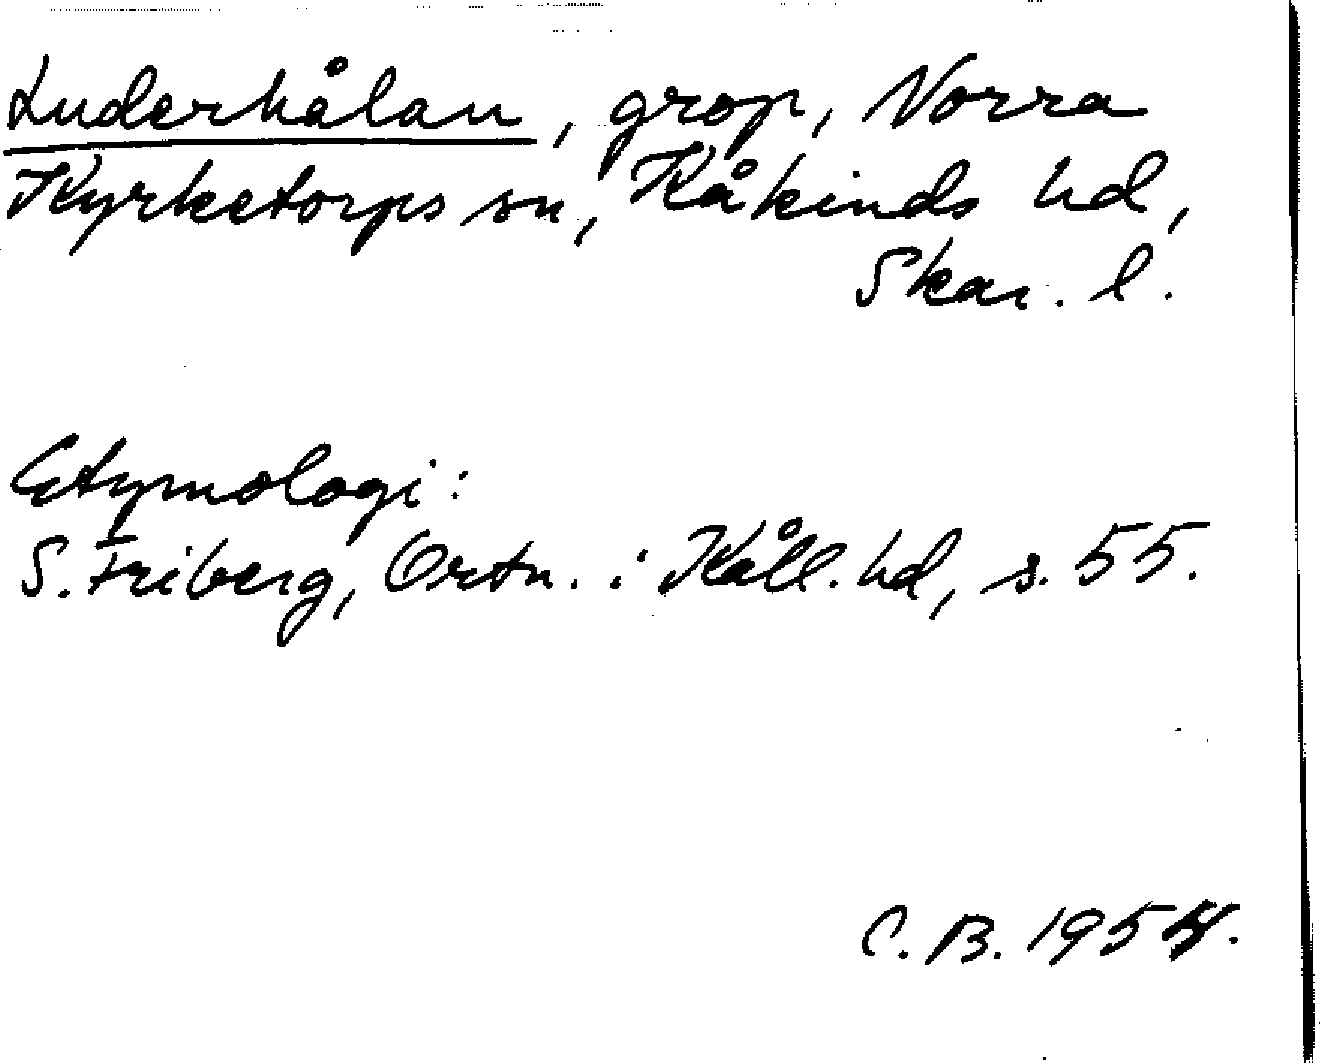 Luderhålan, grop, Norra
Kyrketorps sn, Kåkinds hd,
Skar. l.
Etymologi:
S. Friberg, Ortn. i Kåll. hd, s. 55.
C. B. 1954.